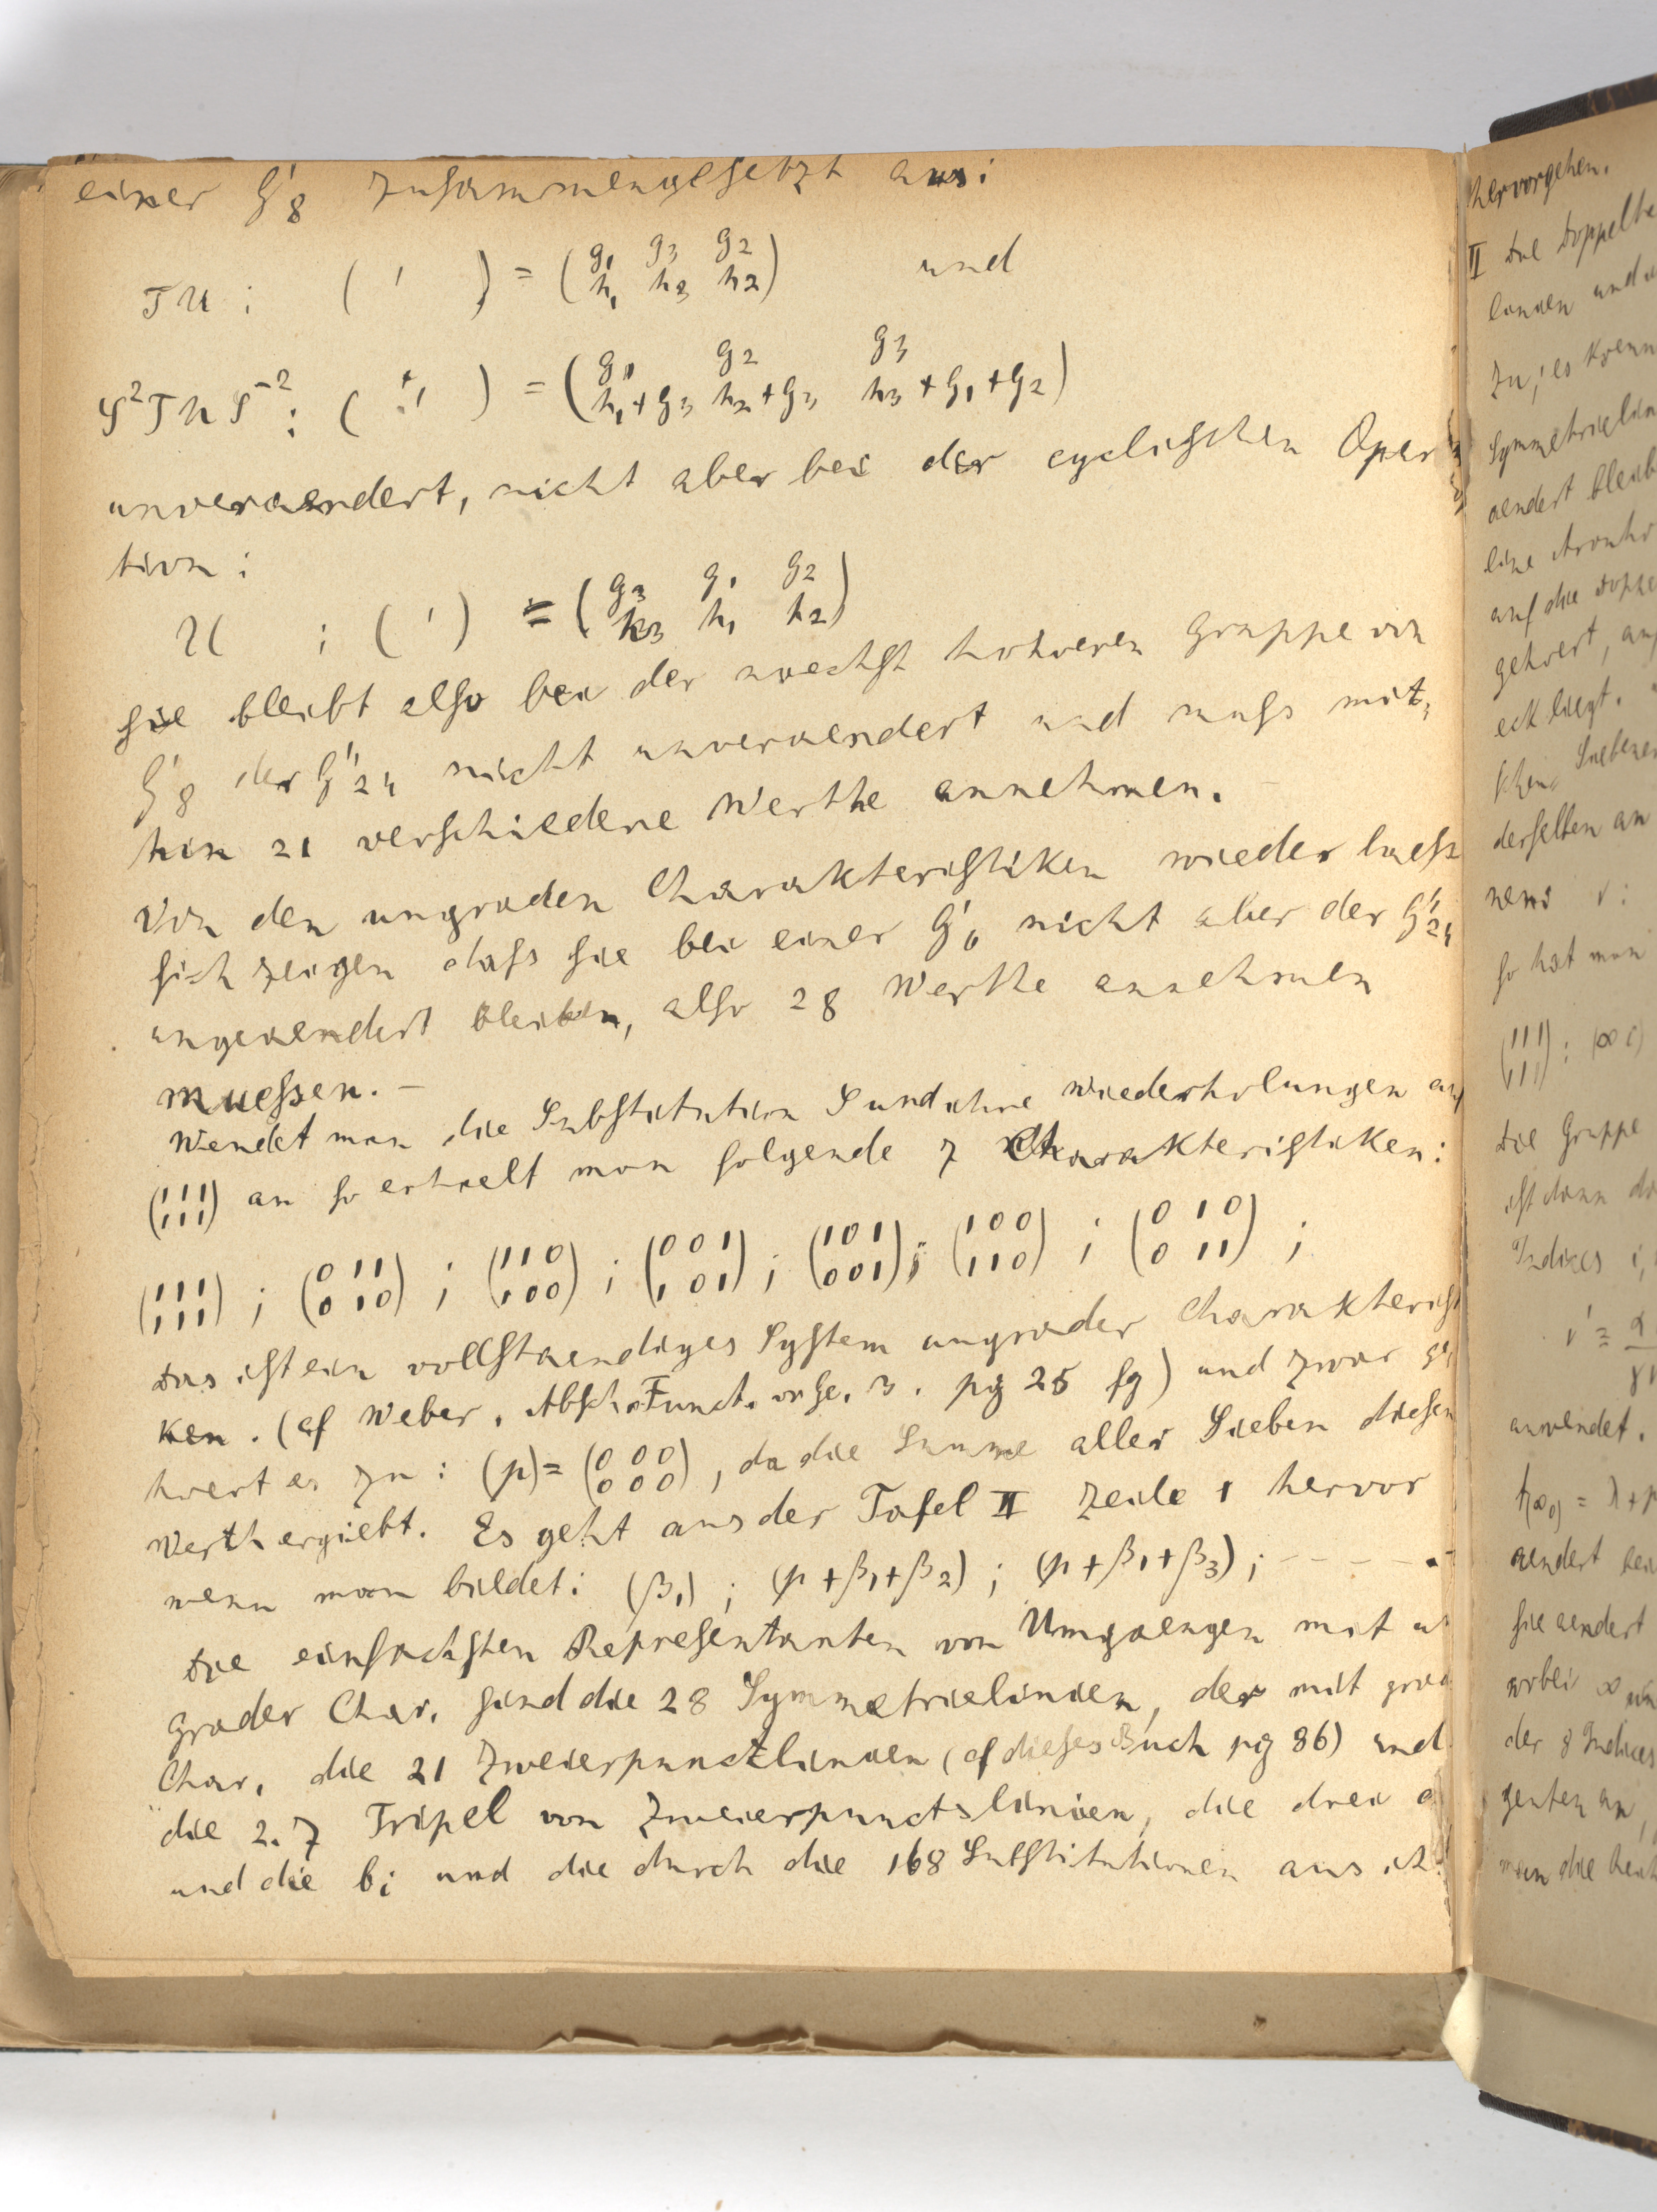 einer G'8 zusammengesetzt aus:
TU : ( ' ) = (g1 g3 g2 / h1 h3 h2) und
S²TUS⁻² : ( ' ) = (g1 g2 g3 / h1+g3 h2+g3 h3+g1+g2)
unveraendert, nicht aber bei der cyclischen Oper
tion :
U : ( ' ) = (g3 g1 g2 / h3 h1 h2)
sie bleibt also bei der naechst hoheren Gruppe von
G'8 der G''24 nicht unveraendert und muss mit-
hin 21 verschiedene Werthe annehmen. –
Von den ungraden Charakteristiken wieder laess
sich zeigen dass sie bei einer G'6 nicht aber der G''24
ungeaendert bleiben, also 28 Werthe annehmen
muessen. –
Wendet man die Substitution S und ihre Wiederholungen auf
(111 / 111) an so erhaelt man folgende 7 Charakteristiken:
(111 / 111) ; (011 / 010) ; (110 / 100) ; (001 / 101) ; (101 / 001) ; (100 / 110) ; (010 / 011) ;
Das ist ein vollstaendiges System ungrader Charakterist
ken. (cf Weber, Abelsch. Funct. v. Ge. 3. pg 25 fg) und zwar ge
hoert es zu : (p) = (000 / 000), da die Summe aller Sieben diesen
Werth ergiebt. Es geht aus der Tafel II Zeile 1 hervor
wenn man bildet: (β1) ; (p+β1+β2) ; (p+β1+β3) ; – – – – –
Die einfachsten Representanten von Umgaengen mit u
grader Char. sind die 28 Symmetrielinien, der mit grad
Char. die 21 Zweierpunctlinien (cf dieses Buch pg 86) und
die 2.7 Tripel von Zweierpunctslinien, die drei a
und die bi und die durch die 168 Substitutionen aus ih
hervorgehen.
II Die Doppelta
linien und
zu; es koenn
Symmetrielin
aendert bleib
eine
auf die Doppe
gehoert,
eck liegt.
Siebene
derselben an
nens v :
so hat man
(111 / 111) : (∞ 0)
Die Gruppe
ist dann
Indices i,
v' = α
anwendet.
aendert
sie aendert
wobei ∞
der 8 Indices
genten an,
man die